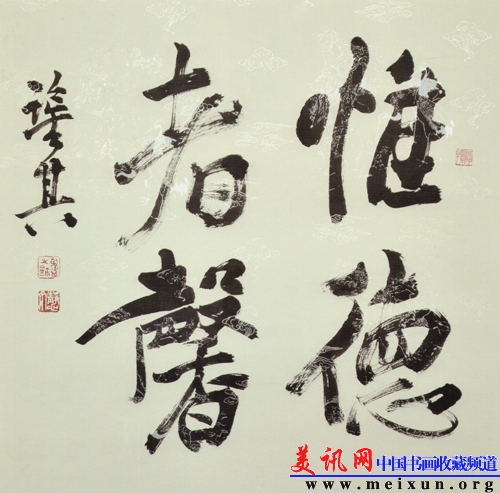 惟德
者馨
美讯网 中国书画收藏频道
www.meixun.org